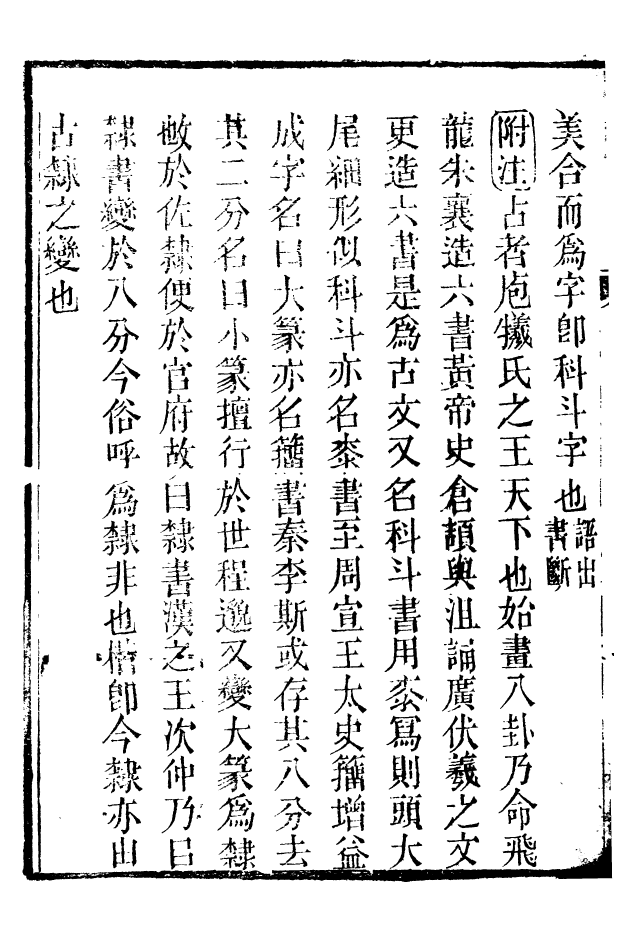 美合而爲字卽科斗字也語出書斷
附注古者庖犧氏之王天下也始畫八卦乃命飛
龍朱襄造六書黃帝史倉頡與沮誦廣伏羲之文
更造六書是爲古文又名科斗書用桼寫則頭大
尾細形似科斗亦名桼書至周宣王太史籒增益
成字名曰大篆亦名籒書秦李斯或存其八分去
其二分名曰小篆擅行於世程邈又變大篆爲隸
敏於佐隸便於官府故曰隸書漢之王次仲乃曰
隸書變於八分今俗呼爲隸非也楷卽今隸亦由
古隸之變也